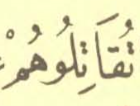 تُقَاتِلُوهُمْ